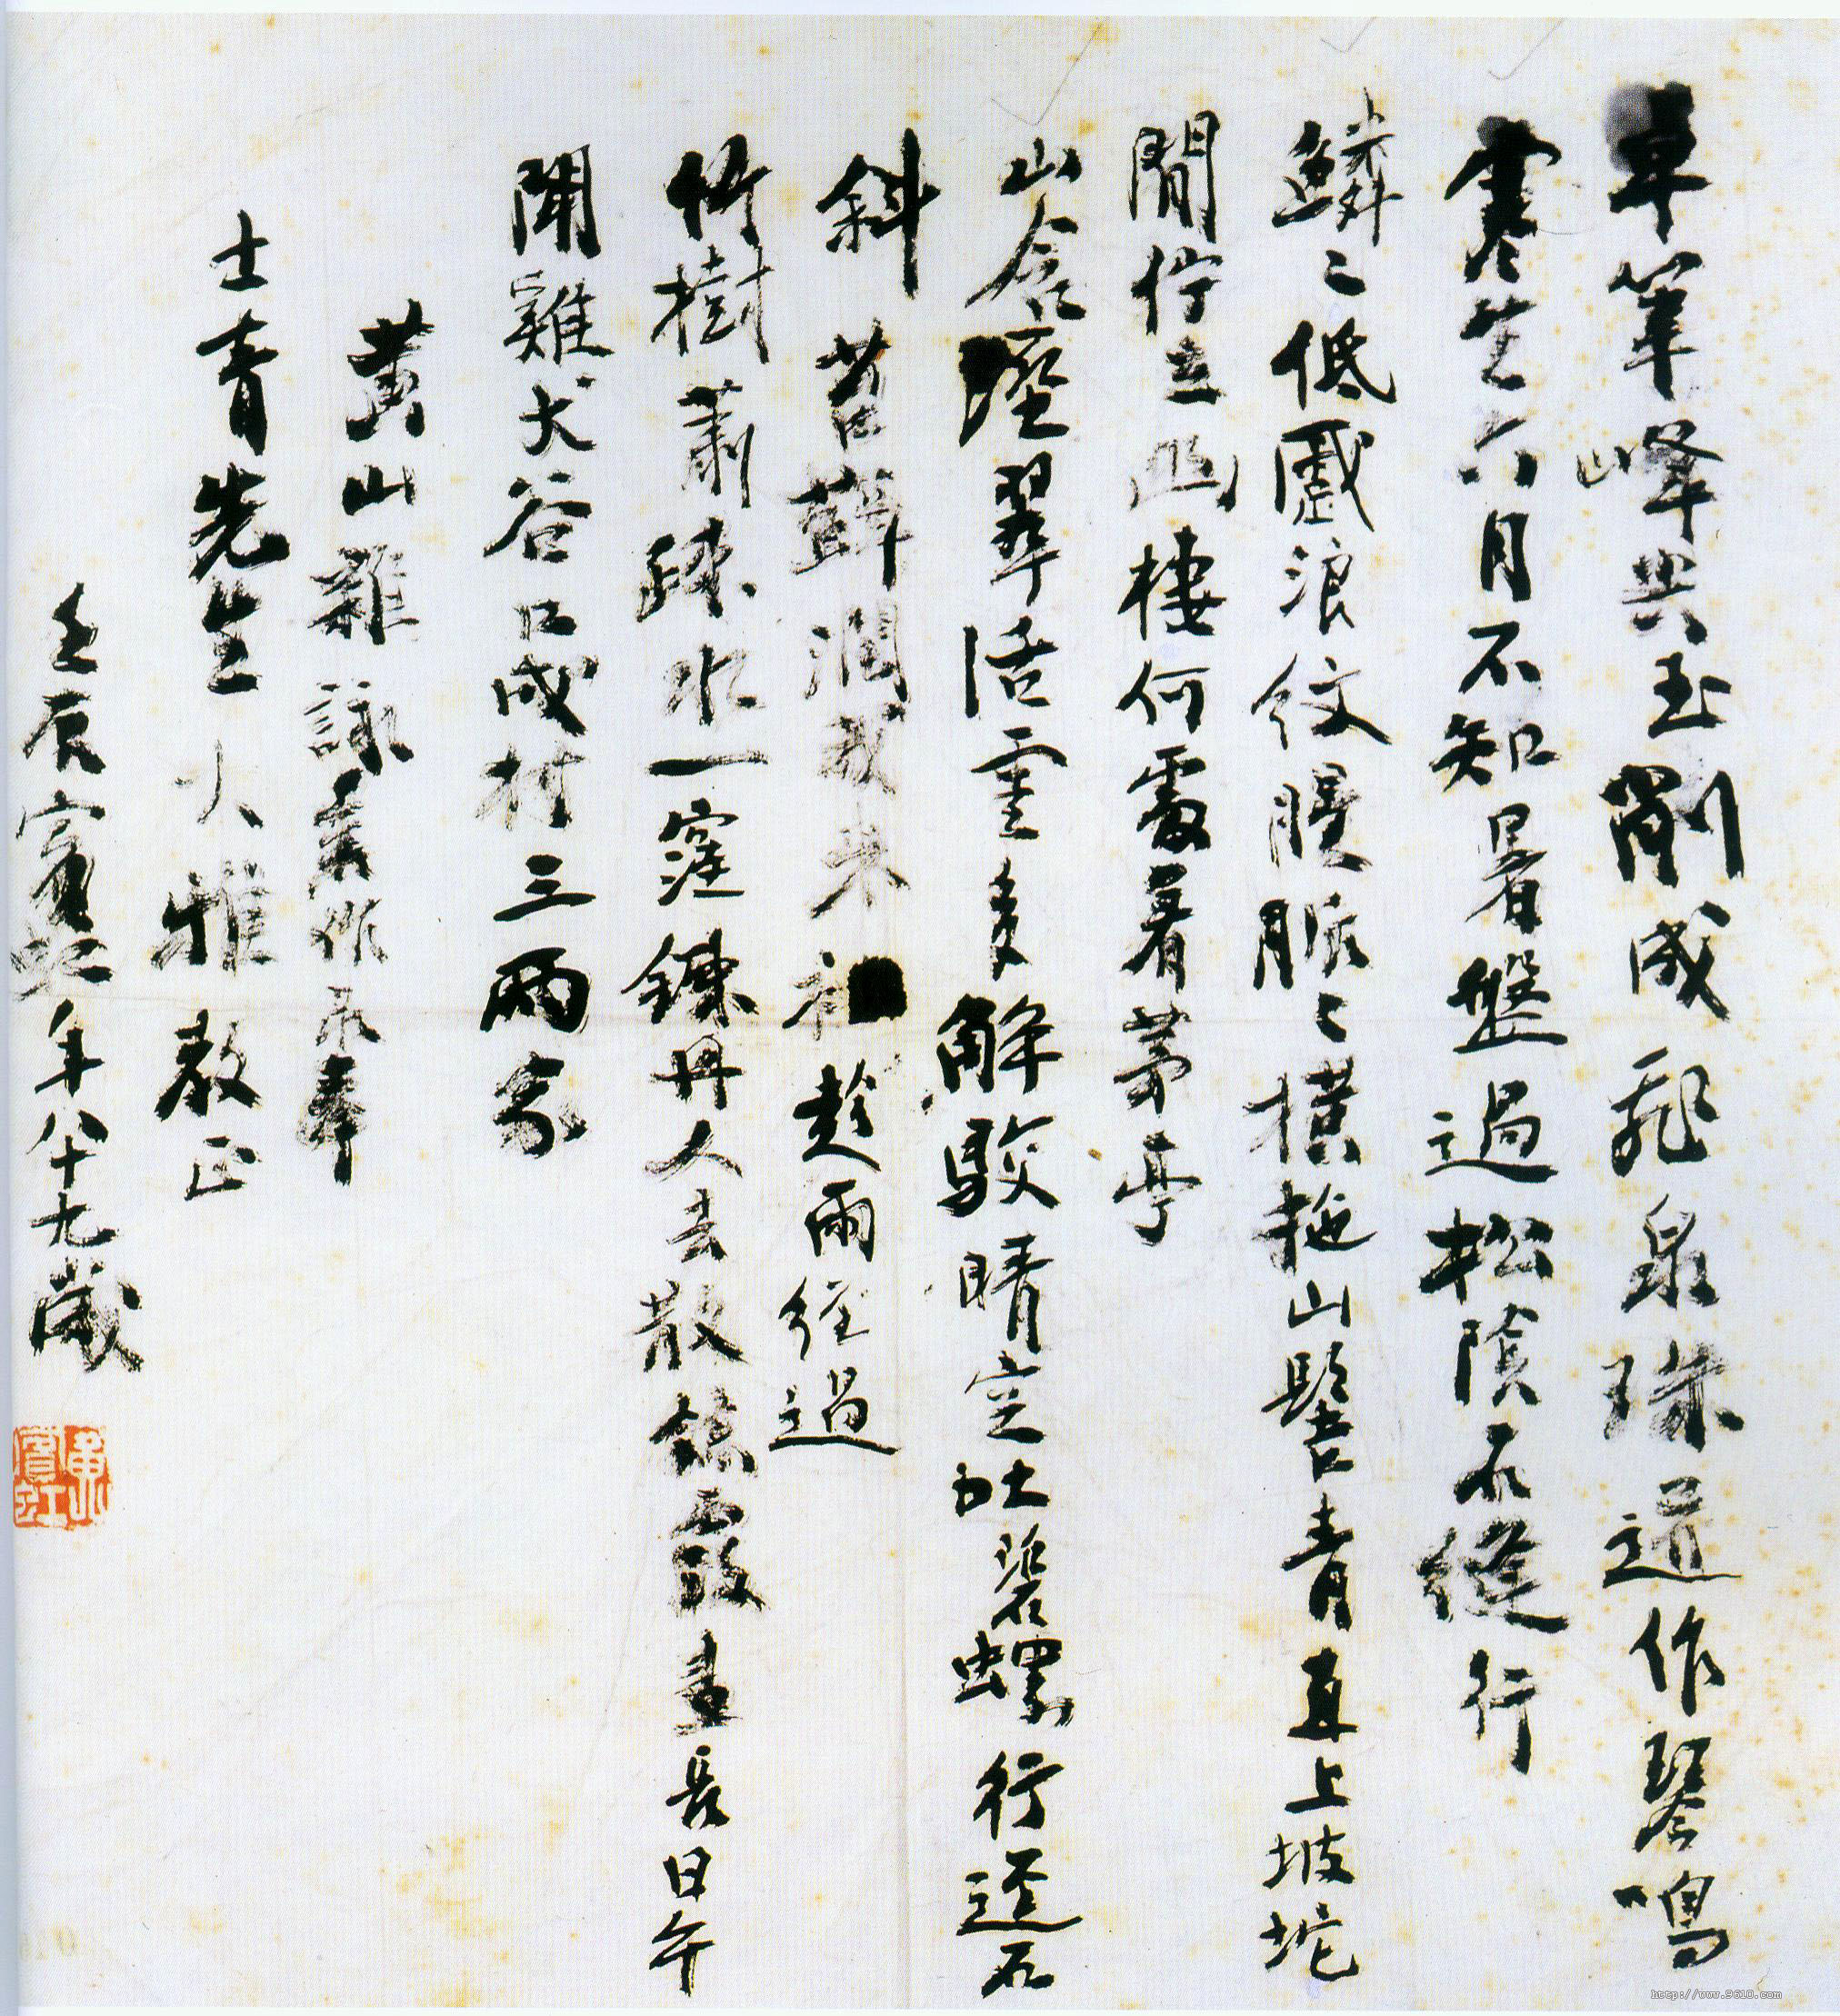 卓筆峰與玉劚成飛泉珠迸作琴鳴
寒生六月不知暑盤過松陰石縫行
鱗〻低蹙浪紋脈〻橫拖山髻青直上坡坨
閒佇立幽棲何處著茅亭
山含溼翠活雲多解駁晴空吐碧螺行逕石
斜苔蘚潤我來初趁雨經過
竹樹蕭疎水一窪鍊丹人去散餘霞晝長日午
聞雞犬谷口成村三兩家
黃山雜詠舊作录奉
士青先生大雅教正
壬辰賓虹年八十九歲
黃山賓虹
http://www.9610.com